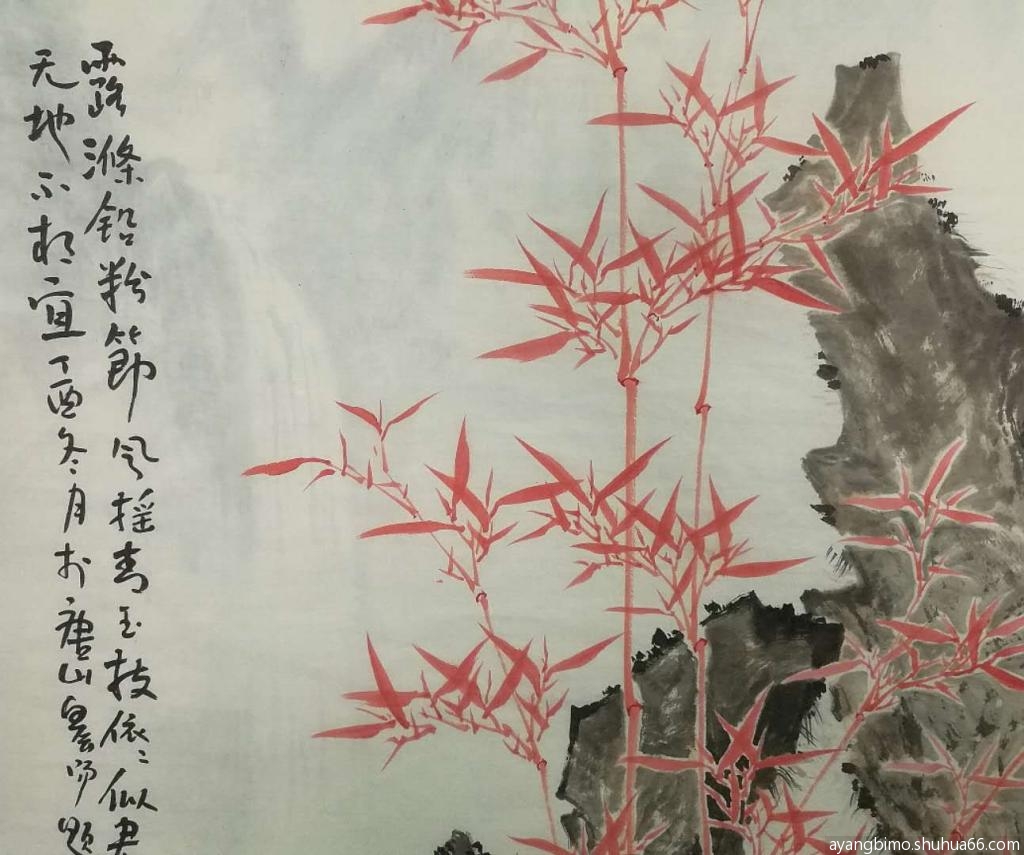 露滌铅粉節风摇青玉枝依〻似君
无地不相宜丁酉冬月於唐山題
ayangbimo.shuhua66.com